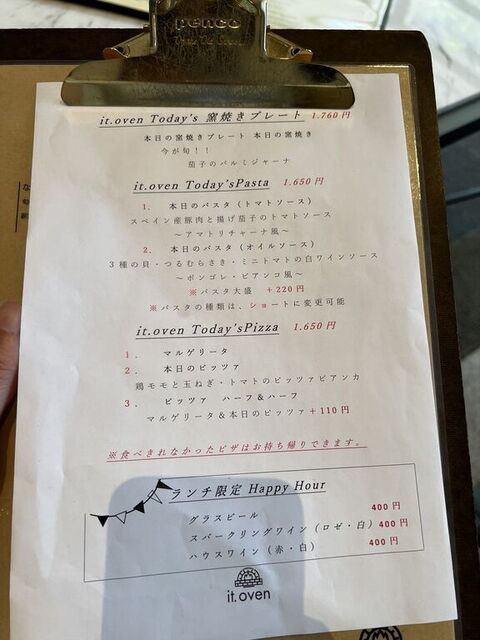 penco
it.oven Today's 窯焼きプレート 1.760円
本日の窯焼きプレート 本日の窯焼き
今が旬！！
茄子のパルミジャーナ
it.oven Today'sPasta 1.650円
1. 本日のパスタ（トマトソース）
スペイン産豚肉と揚げ茄子のトマトソース
～アマトリチャーナ風～
2. 本日のパスタ（オイルソース）
3種の貝・つるむらさき・ミニトマトの白ワインソース
～ボンゴレ・ビアンコ風～
※パスタ大盛 +220円
※パスタの種類は、ショートに変更可能
it.oven Today'sPizza 1.650円
1. マルゲリータ
2. 本日のピッツァ
鶏モモと玉ねぎ・トマトのピッツァビアンカ
3. ピッツァ ハーフ＆ハーフ
マルゲリータ＆本日のピッツァ+110円
※食べきれなかったピザはお持ち帰りできます。
ランチ限定 Happy Hour
グラスビール 400円
スパークリングワイン（ロゼ・白）400円
ハウスワイン（赤・白） 400円
it.oven